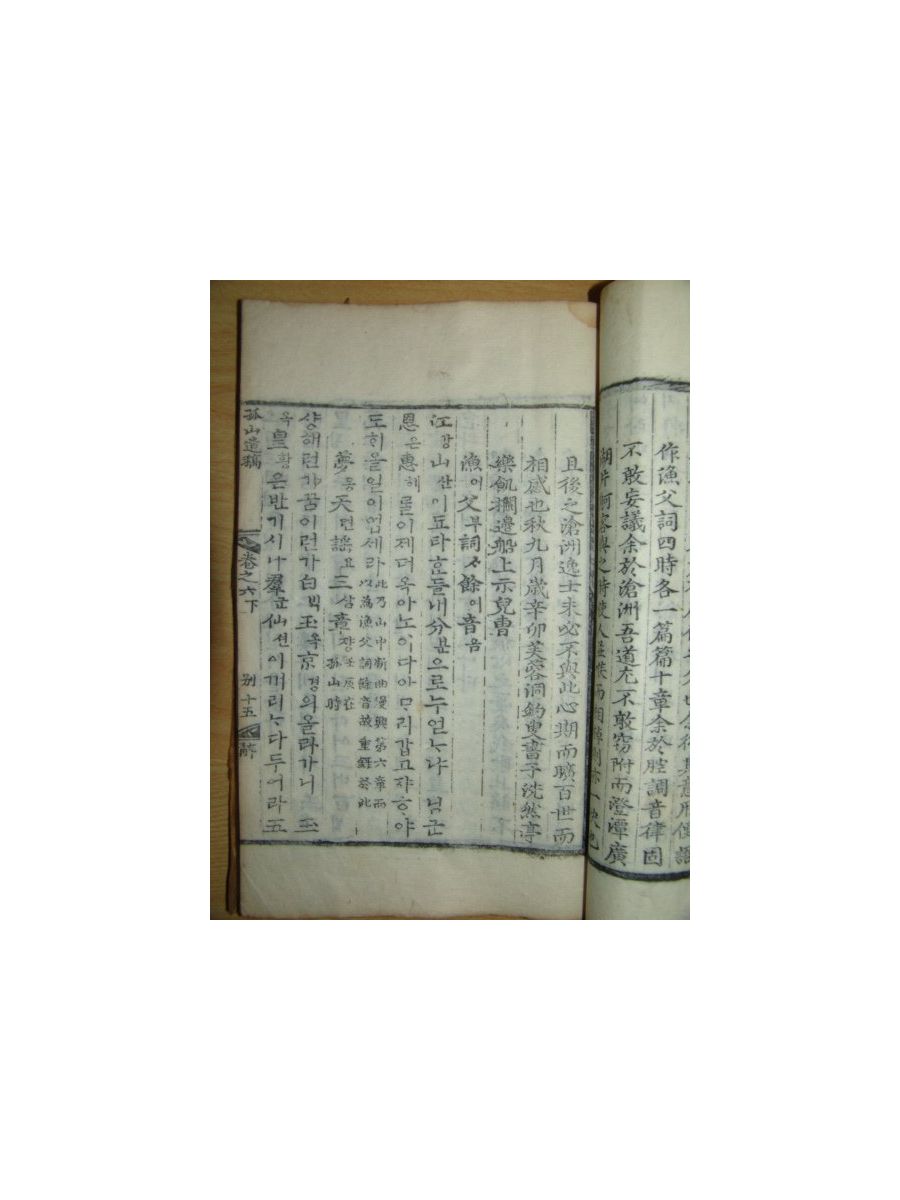 作漁父詞四時各一篇篇十章余於腔調音律固
不敢妄議余於滄洲吾道尤不敢窃附而澄潭廣
且後之滄洲逸士未必不與此心期而曠百世而
相感也秋九月歲辛卯芙蓉洞釣叟書于洗然亭
樂飢欄邊船上示兒曹
漁어父부詞ᄉᆞ餘여音음
江강山산이됴타ᄒᆞᆫ들내分분으로누얻ᄂᆞ냐님군
恩은惠혜ᄅᆞᆯ이제더옥아노이다아ᄆᆞ리갑고쟈ᄒᆞ야
도ᄒᆡ올일이업세라此乃山中新曲漫興第六章而
以爲漁父詞餘音故重錄於此
夢몽天텬謠요三삼章쟝壬辰在
孤山時
샹해런가ᄭᅮᆷ이런가白ᄇᆡᆨ玉옥京경의올라가니玉
옥皇황은반기시나羣군仙션이ᄭᅥ리ᄂᆞ다두어라五
孤山遺稿
卷之六下
別十五